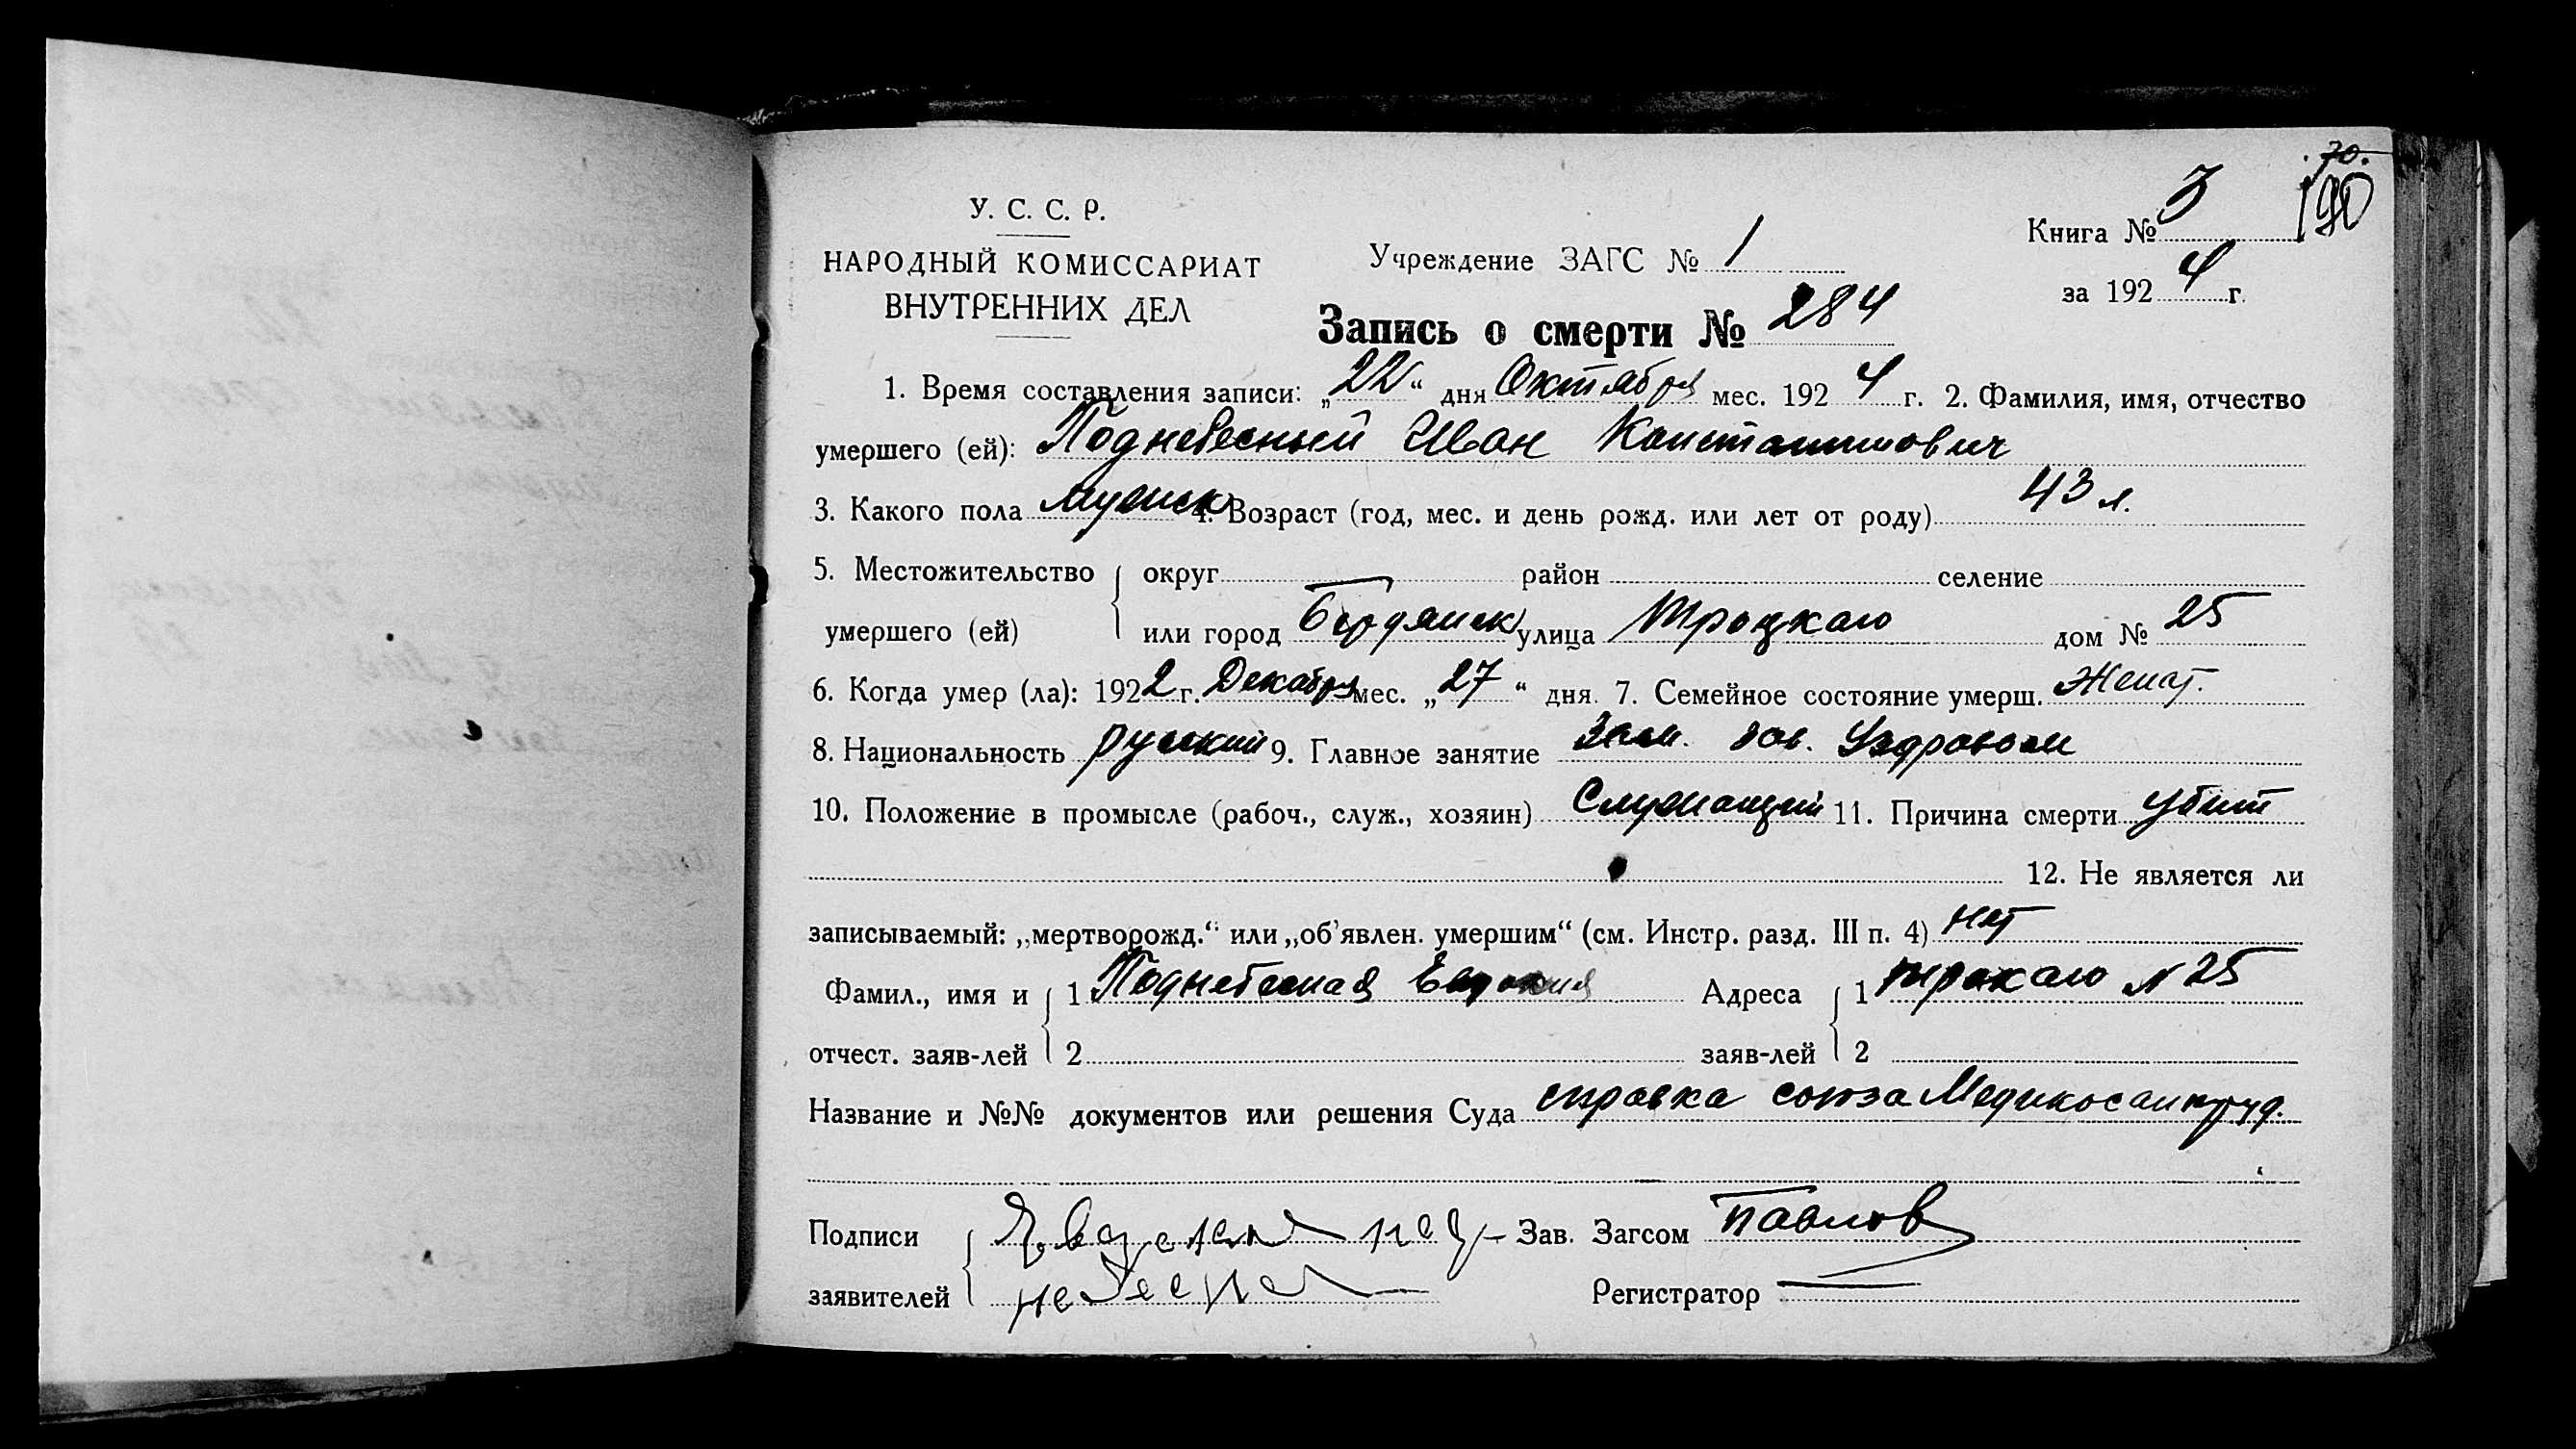 70.
190
У. С. С. Р.
НАРОДНЫЙ КОМИССАРИАТ
ВНУТРЕННИХ ДЕЛ
Учреждение ЗАГС № 1
Книга № 3
за 1924 г.
Запись о смерти № 284
1. Время составления записи: „22“ дня Октября мес. 1924 г. 2. Фамилия, имя, отчество
умершего (ей): Поднебесный Иван Константинович
3. Какого пола мужск 4. Возраст (год, мес. и день рожд. или лет от роду) 43 л.
5. Местожительство округ район селение
умершего (ей) или город Бердянск улица Троцкаго дом № 25
6. Когда умер (ла): 1922 г. Декабря мес. „27“ дня. 7. Семейное состояние умерш. Женат.
8. Национальность русский 9. Главное занятие Зам. зав. Уздравом
10. Положение в промысле (рабоч., служ., хозяин) Служащий 11. Причина смерти убит
12. Не является ли
записываемый: „мертворожд.“ или „об’явлен. умершим“ (см. Инстр. разд. III п. 4) нет
Фамил., имя и 1 Поднебесная Евдокия Адреса 1 Троцкаго № 25
отчест. заяв-лей 2 заяв-лей 2
Название и №№ документов или решения Суда справка союза Медикосантруд.
Подписи под- Зав. Загсом Павлов
заявителей небесная Регистратор